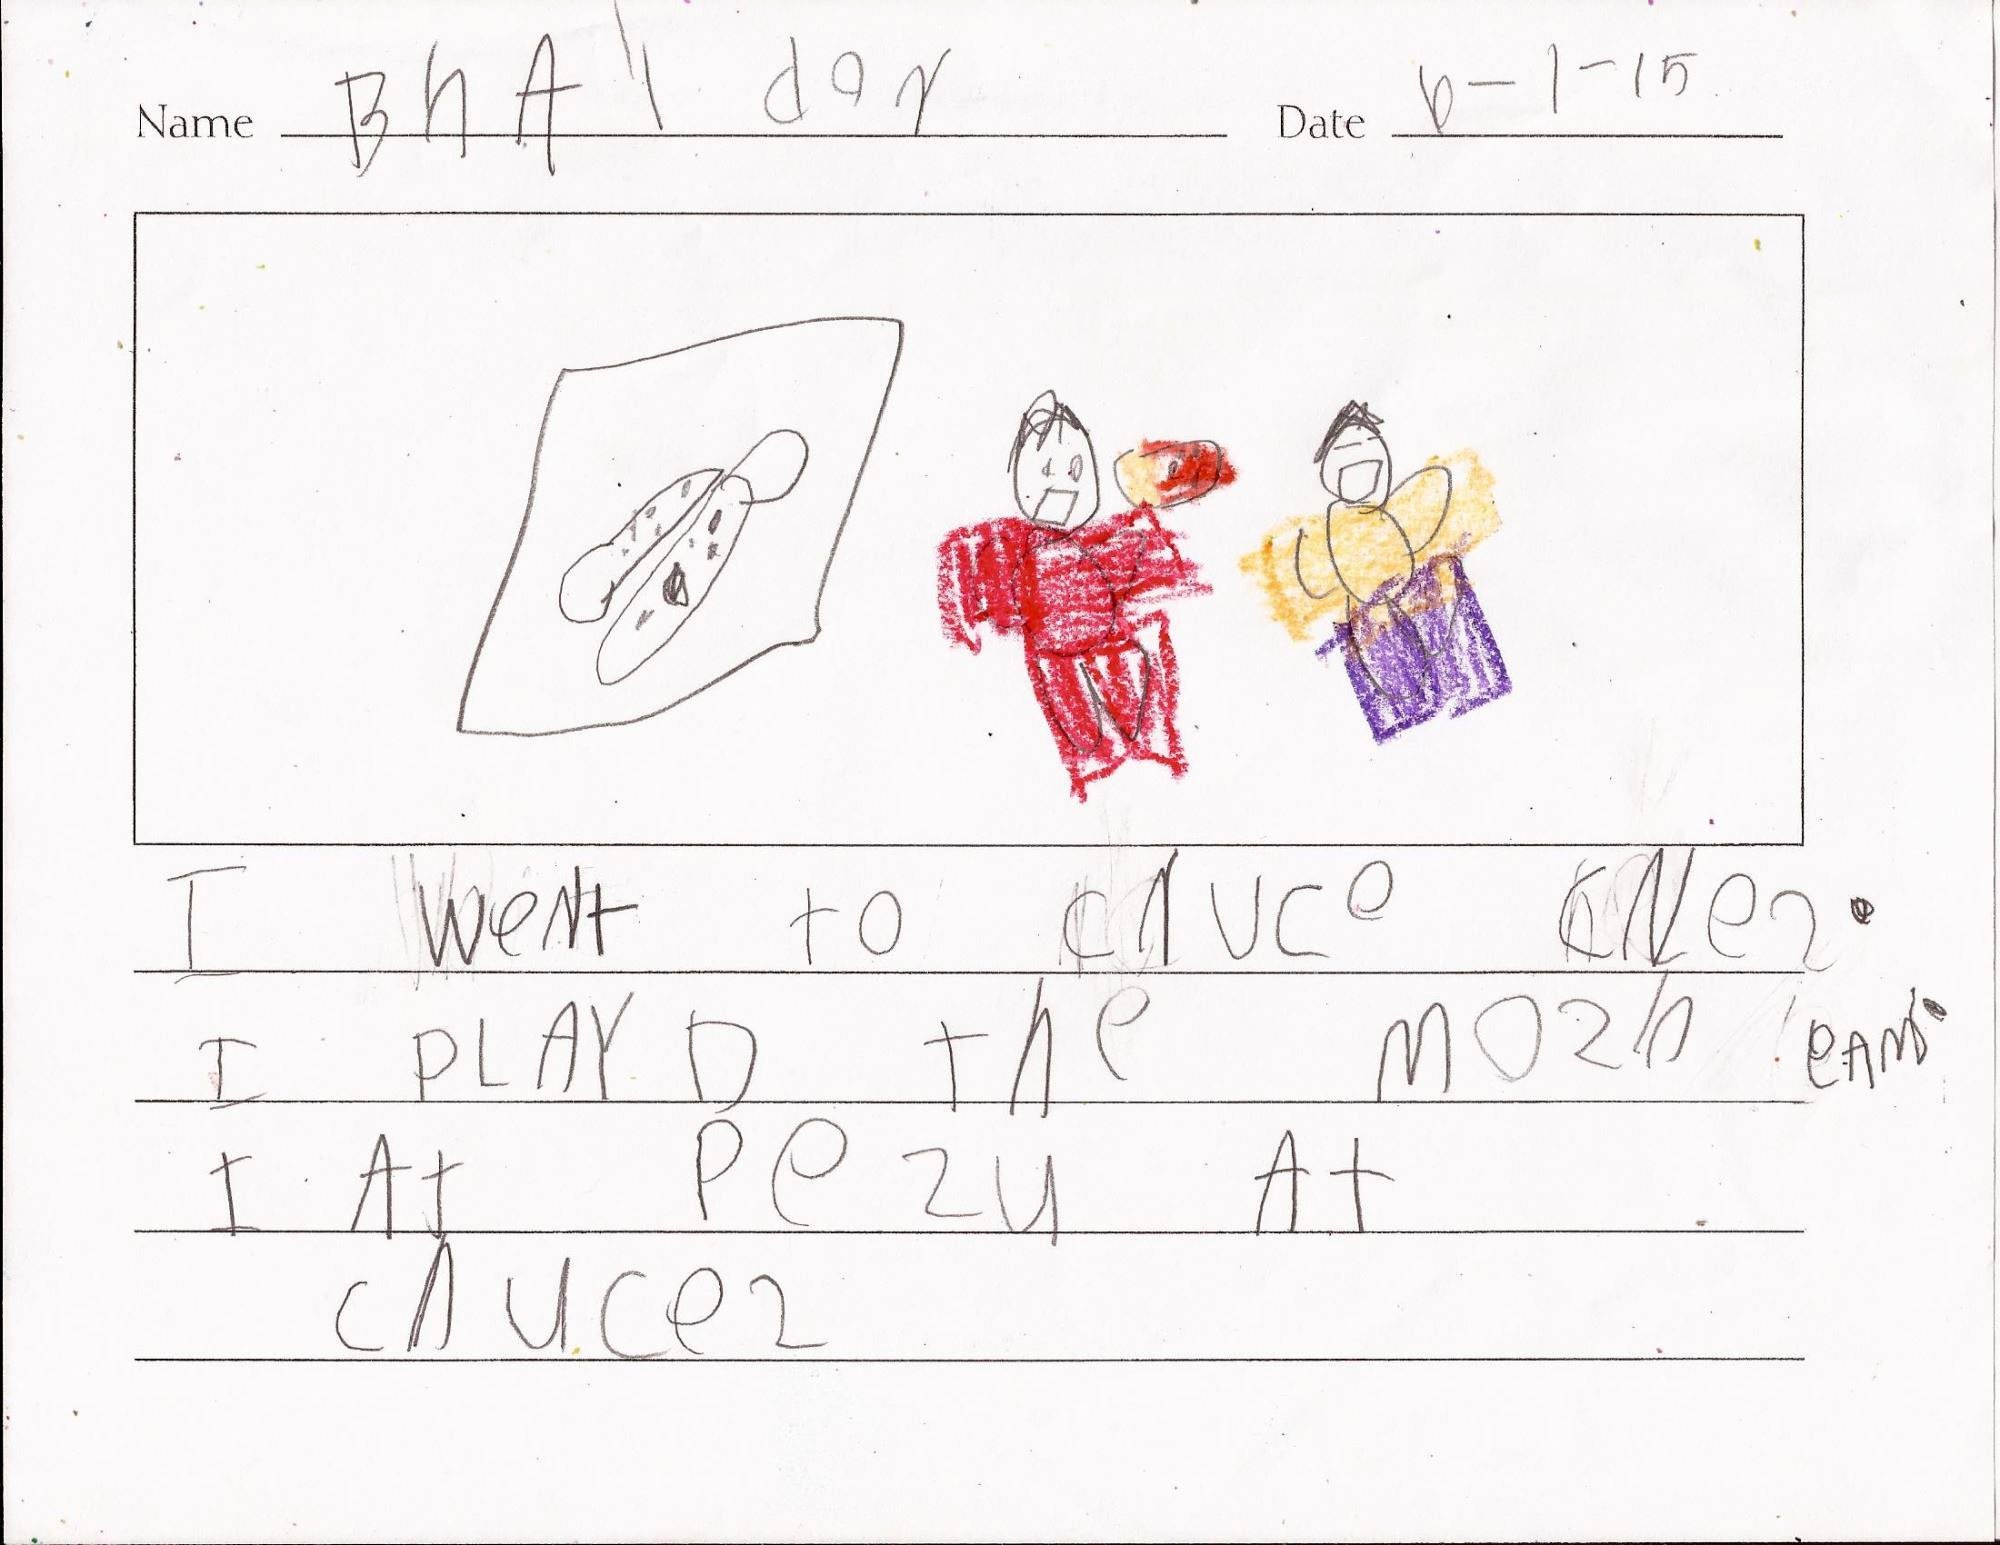 Name BhAl day Date 6-1-15
I went to cAUce ANez.
I PLAYD the mozh eAm.
I At Pezu At
cAUcez